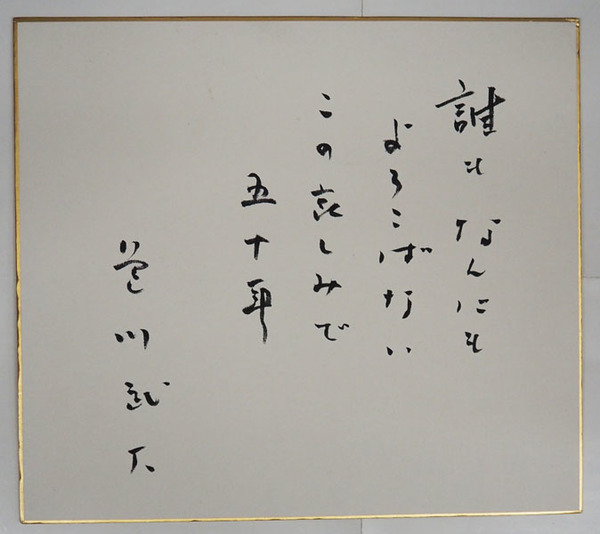 誰も なんにも
よろこばない
この哀しみで
五十年
笹川武